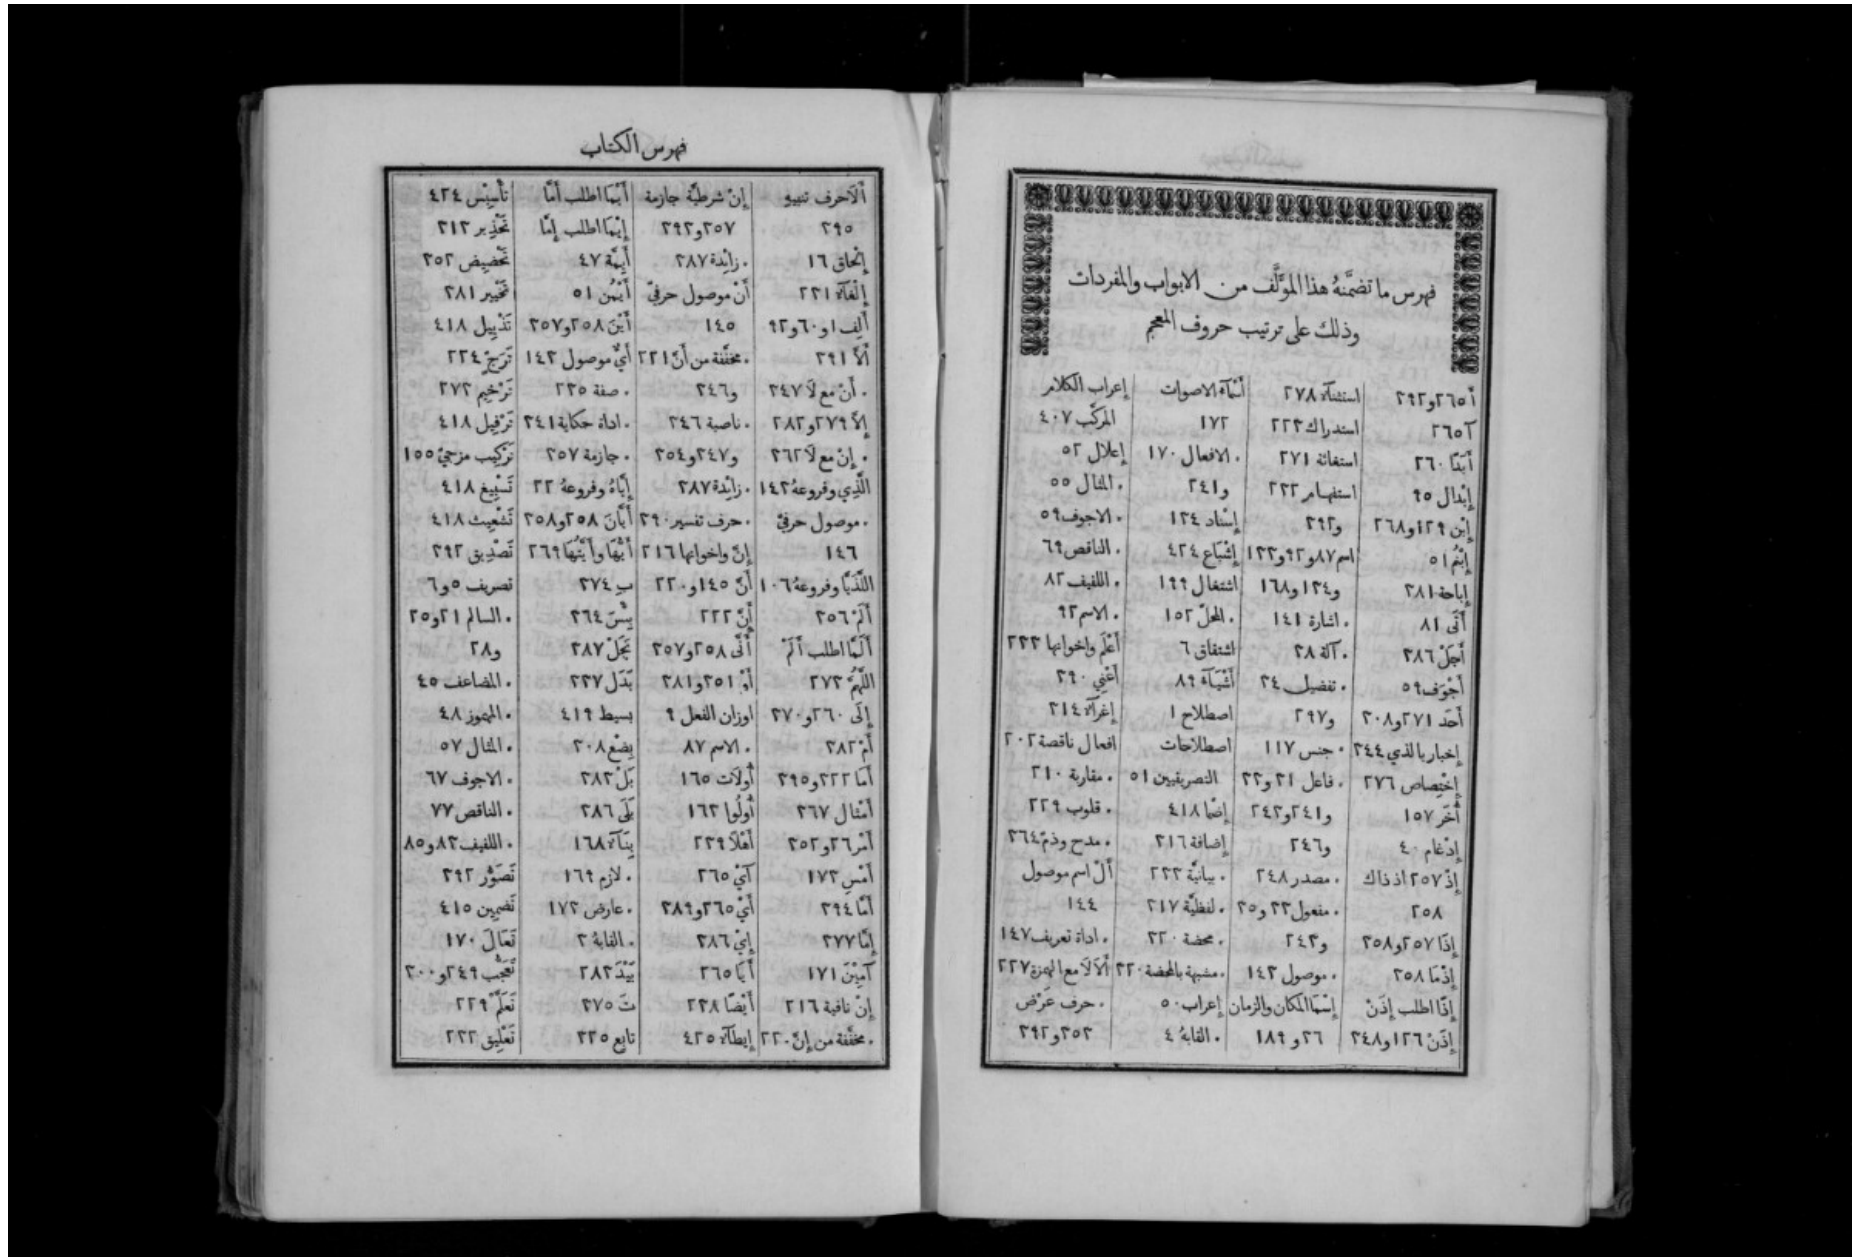 فهرس ما تضمَّنهُ هذا المؤَلَّف من الابواب والمفردات
وذلك على ترتيب حروف المعجم
أ ٢٦٥ و٢٩٢
آ ٢٦٥
أَبَدًا ٢٦٠
إِبْدال ٩٥
إِبْن ١٢٩ و٢٦٨
إِبْنُم ٥١
إباحة ٢٨١
أَتَى ٨١
أَجَلْ ٢٨٦
أَجْوَف ٥٩
أَحَد ٢٧١ و٢٠٨
إخبار بالذي ٢٤٤
إِخْتِصاص ٢٧٦
أُخَر ١٥٧
إِدْغام ٤٠
إِذْ ٢٥٧ اذ ذاك
٢٥٨
إِذَا ٢٥٧ و٢٥٨
إِذْمَا ٢٥٨
إِذًا اطلب إِذَنْ
إِذَنْ ١٢٦ و٢٤٨
استثناء ٢٧٨
استدراك ٢٢٣
استغاثة ٢٧١
استفهام ٢٢٢
و٢٩٢
اسم ٨٧ و٩٢ و١٢٢
و١٢٤ و١٦٨
. اشارة ١٤١
. آلة ٢٨
. تفضيل ٢٤
و٢٩٧
. جنس ١١٧
. فاعل ٢١ و٢٢
و٢٤١ و٢٤٢
و٢٤٦
. مصدر ٢٤٨
. مفعول ٢٢ و٢٥
و٢٤٣
. موصول ١٤٢
إِسْمَا المكان والزمان
٢٦ و١٨٩
أسْمَاء الاصوات
١٧٢
. الافعال ١٧٠
و٢٤١
إِسْناد ١٢٤
إِشْبَاع ٤٢٤
اشتغال ١٩٩
. المحلّ ١٥٢
اشتقاق ٦
أَشْيَاء ٨٩
اصطلاح ١
اصطلاحات
التصريفيين ٥١
إِضْمَا ٤١٨
إِضافة ٢١٦
. بيانيَّة ٢٢٢
. لفظيَّة ٢١٧
. محضة ٢٢٠
. مشبهة بالمحضة ٢٢٠
إعراب ٥٠
. القابهُ ٤
إعراب الكلام
المركَّب ٤٠٧
إعلال ٥٢
. المثال ٥٥
. الاجوف ٥٩
. الناقص ٦٩
. اللفيف ٨٢
. الاسم ٩٢
أَعْلَم واخواتها ٢٢٢
أَعْنِي ٢٩٠
إِغراء ٢١٤
افعال ناقصة ٢٠٢
. مقاربة ٢١٠
. قلوب ٢٢٩
. مدح وذمّ ٢٦٤
أَلْ اسم موصول
١٤٤
. اداة تعريف ١٤٧
أَلاَ لاَ مع الهمزة ٢٢٧
. حرف عَرْض
٢٥٢ و٢٩٢
فهرس الكتاب
أَلاَ حرف تنبيه
٢٩٥
إِلْحاق ١٦
إِلْغاء ٢٢١
أَلِف ١ و٦٠ و٩٢
أَلاَّ ٢٩١
. أَنْ مع لاَ ٢٤٧
إِلاَّ ٢٧٩ و٢٨٢
. إِنْ مع لاَ ٢٦٢
الَّذِي وفروعهُ ١٤٢
. موصول حرفيّ
١٤٦
اللَّذَيَّا وفروعهُ ١٠٦
أَلَمْ ٢٥٦
أَلَمَّا اطلب أَلَمْ
اللَّهُمَّ ٢٧٢
إِلَى ٢٦٠ و٢٧٠
أَمْ ٢٨٢
أَمَا ٢٢٢ و٢٩٥
أَمْثال ٢٦٧
أَمْر ٢٦ و٢٥٢
أَمْسِ ١٧٢
أَمَّا ٢٩٤
إِمَّا ٢٧٧
آمِيْنَ ١٧١
إِنْ نافية ٢١٦
. مخفَّفة من إِنَّ ٢٢٠
إِنْ شرطيَّة جازمة
٢٥٧ و٢٩٢
. زائِدة ٢٨٧
أَنْ موصول حرفيّ
١٤٥
. مخفَّفة من أَنَّ ٢٢١
و٢٤٦
. ناصبة ٢٤٦
و٢٤٧ و٢٥٤
. زائِدة ٢٨٧
. حرف تفسير ٢٩٠
إِنَّ واخواتها ٢١٦
أَنَّ ١٤٥ و٢٢٠
إِنَّ ٢٢٢
أَنَّى ٢٥٨ و٢٥٧
أَوْ ٢٥١ و٢٨١
اوزان الفعل ٩
. الاسم ٨٧
أُولاَت ١٦٥
أُولُوا ١٦٢
أَهْلاً ٢٢٩
آيْ ٢٦٥
أَيْ ٢٦٥ و٢٨٩
إِيْ ٢٨٦
أَيَا ٢٦٥
أَيْضًا ٢٢٨
إِيطاء ٤٢٥
أَيْمَا اطلب أَمَّا
إِيْمَا اطلب إِمَّا
أَيِمَّة ٤٧
أَيْمُن ٥١
أَيْنَ ٢٥٨ و٢٥٧
أَيّ موصول ١٤٢
. صفة ٢٢٥
. اداة حكاية ٢٤١
. جازمة ٢٥٧
إِيَّاهُ وفروعهُ ٢٢
أَيَّانَ ٢٥٨ و٢٥٨
أَيُّهَا وأَيَّتُهَا ٢٦٩
بِ ٢٧٤
بِئْسَ ٢٦٤
بَجَلْ ٢٨٧
بَدَل ٢٢٧
بسيط ٤١٩
بِضْع ٢٠٨
بَلْ ٢٨٢
بَلَى ٢٨٦
بِنَاء ١٦٨
. لازم ١٦٩
. عارض ١٧٢
. القابهُ ٢
بَيْدَ ٢٨٢
تَ ٢٧٥
تابع ٢٢٥
تأْسِيْس ٤٢٤
تَحْذِير ٢١٢
تَحْضِيض ٢٥٢
تَخْيير ٢٨١
تَذْيِيل ٤١٨
تَرَجٍّ ٢٢٤
تَرْخِيم ٢٧٢
تَرْفِيل ٤١٨
تَرْكِيب مزجيّ ١٥٥
تَسْبِيغ ٤١٨
تَشْعِيث ٤١٨
تَصْدِيق ٢٩٢
تصريف ٥ و٦
. السالم ٢١ و٢٥
و٢٨
. المضاعف ٤٥
. المهموز ٤٨
. المثال ٥٧
. الاجوف ٦٧
. الناقص ٧٧
. اللفيف ٨٢ و٨٥
تَصَوُّر ٢٩٢
تَضمِين ٤١٥
تَعَالَ ١٧٠
تَعَجُّب ٢٤٩ و٢٠٠
تَعَلَّمْ ٢٢٩
تَعْلِيق ٢٢٢